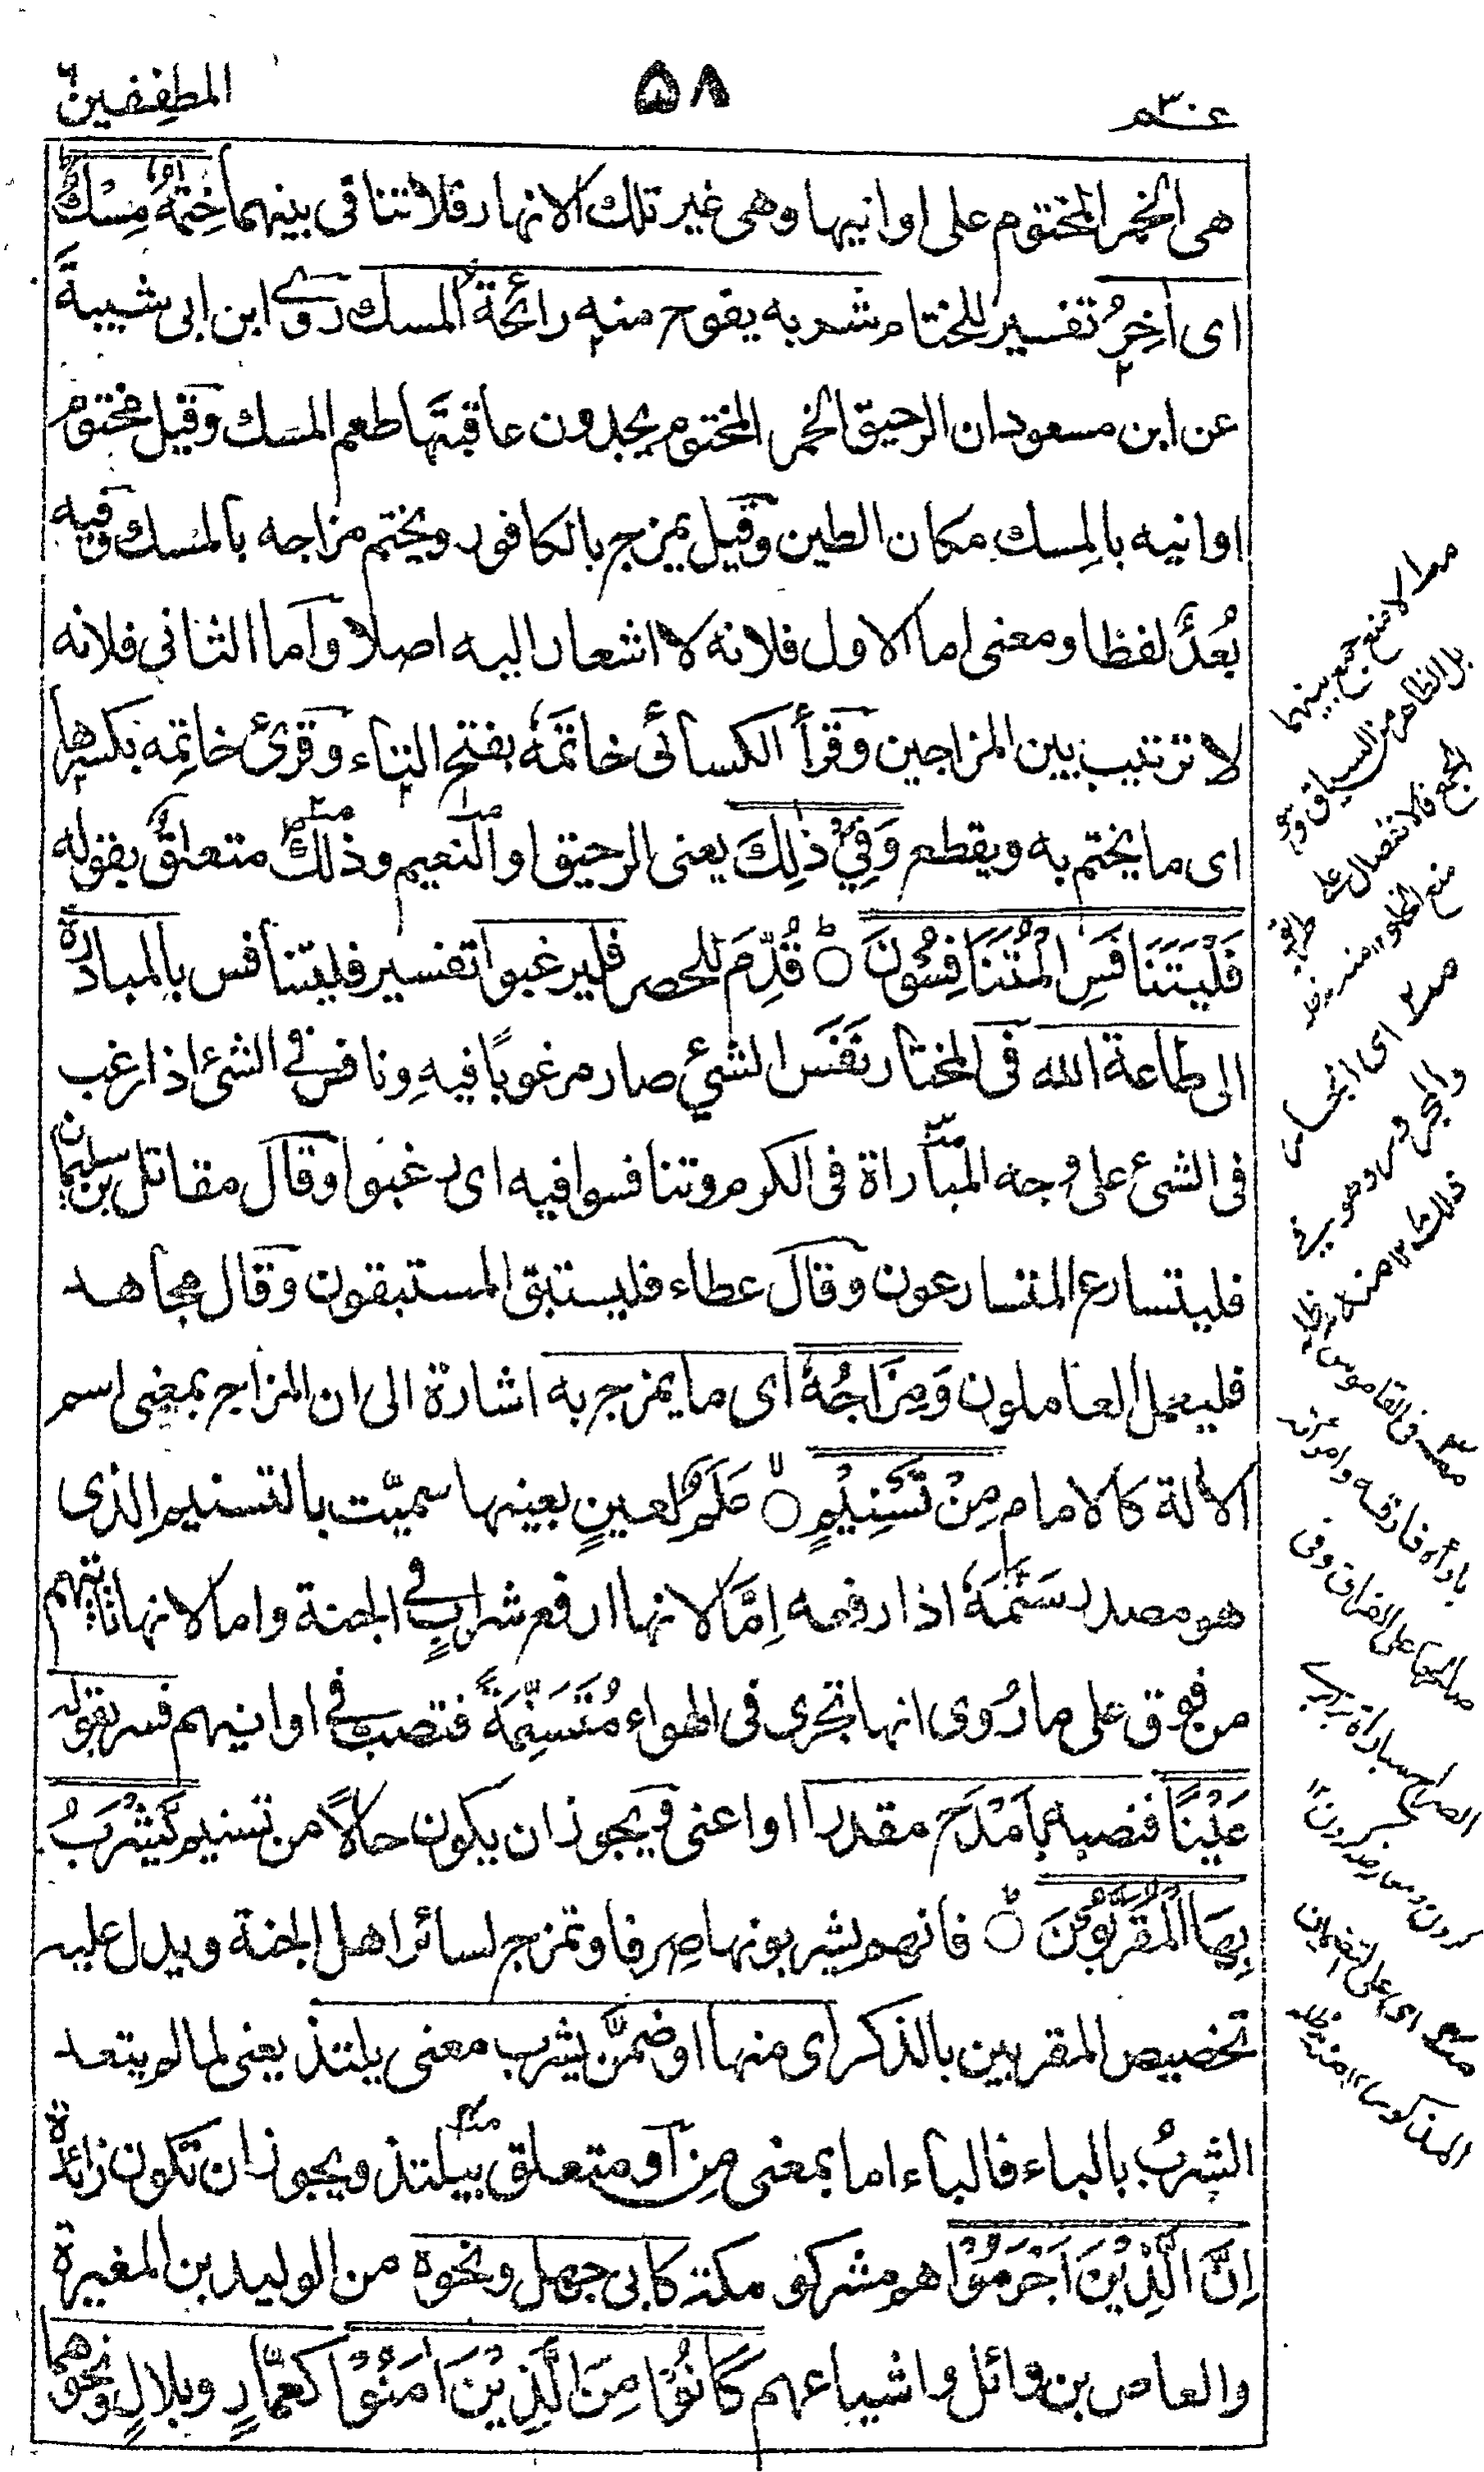 عـ۳۰ـم
۵۸
المطففين
هى الخمر المختوم على اوانيها وهى غير تلك الانهار فلا تنافى بينهما خِتٰمُهٗ مِسْكٌ
اى اٰخِرُ تفسير للختام شربه يفوح منه رائحة المسك روى ابن ابى شيبة
عن ابن مسعود ان الرحيق الخمر المختوم يجدون عاقبتها طعم المسك وقيل مختوم
اوانيه بالمِسك مكان الطين وقيل يمزج بالكافور ويختم مزاجه بالمسك وفيه
بُعدٌ لفظا ومعنى اما الاول فلانه لا اشعار اليه اصلا واما الثانى فلانه
لا ترتيب بين المزاجين وقرأ الكسائى خاتَمُهٗ بفتح التاء وقرئ خاتِمه بكسرها
اى ما يختم به ويقطع وَفِيْ ذٰلِكَ يعنى الرحيق او النعيم وذلك متعلق بقوله
فَلْيَتَنَافَسِ الْمُتَنَافِسُوْنَ ○ قُدِّمَ للحصر فليرغبوا تفسير فليتنافس بالمبادرة
الى طاعة الله فى المختار نَفَسَ الشيئ صار مرغوبًا فيه ونافس فى الشئ اذا رغب
فى الشئ على وجه المباراة فى الكرم وتنافسوا فيه اى رغبوا وقال مقاتل بن سليمان
فليتسارع المتسارعون وقال عطاء فليستبق المستبقون وقال مجاهد
فليعمل العاملون وَمِزَاجُهٗ اى ما يمزج به اشارة الى ان المزاج بمعنى اسم
الالة كالامام مِنْ تَسْنِيْمٍ ○ عَلَمٌ لعينٍ بعينها سميّت بالتسنيم الذى
هو مصدر سَنَّمَهٗ اذا رفعه اِمَّا لانها ارفع شرابٍ فى الجنة واما لانها تاتيهم
من فوق على ما رُوى انها تجرى فى الهواء مُتَسَنِّمَةً فتصب فى اوانيهم فسر بقوله
عَيْنًا فنصبه بِاَمْدَح مقدرا او اعنى ويجوز ان يكون حالًا من تسنيم يَّشْرَبُ
بِهَا الْمُقَرَّبُوْنَ ○ فانهم يشربونها صِرفا وتمزج لسائر اهل الجنة ويدل عليه
تخصيص المقربين بالذكر اى منها او ضمّن يشرب معنى يلتذ يعنى لما لم يتعد
الشربُ بالباء فالباء اما بمعنى مِن او متعلق بيلتذ ويجوز ان تكون زائدة
اِنَّ الَّذِيْنَ اَجْرَمُوْا هم مشركو مكة كابى جهل ونحوه من الوليد بن المغيرة
والعاص بن وائل واشياعهم كَانُوْا مِنَ الَّذِيْنَ اٰمَنُوْا كعمّارٍ وبلالٍ ونحوهما
بل الظاهر من السياق
صـ۲ اى الجار
والمجرور وهو فى
ذلك ۱۲ منه
فى القاموس
باراه فارقه وامرأته
صالحها على الفراق وفى
الصراح مباراة
اى على تضمين
المذكور ۱۲ منه